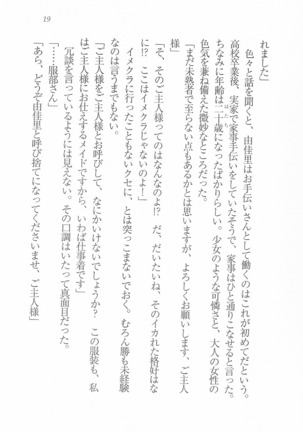 19
れました」
色々と話を聞くと、由佳里はお手伝いさんとして働くのはこれが初めてだという。
高校卒業後、実家で家事手伝いをしていたそうで、家事はひと通りこなせると言った。
ちなみに年齢は二十歳になったばかりらしい。少女のような可憐さと、大人の女性の
色気を兼ね備えた微妙なところだった。
「まだ未熟者で至らない点もあるかとは思いますが、よろしくお願いします、ご主人
様」
「ご、ご主人様ってのはなんなのよ!? だ、だいたいね、そのイカれた格好はな
に!? ここはイメクラじゃないのよー!」
イメクラに行ったこともないクセに、とは突っこまないでおく。むろん勝も未経験
なのは言うまでもない。
「ご主人様をご主人様とお呼びして、なにかいけないでしょうか? この服装も、私
はご主人様にお仕えするメイドですから、いわば仕事着です」
冗談を言っているようには見えない。その口調はいたって真面目だった。
「……服部さん」
「あら、どうぞ由佳里と呼び捨てになってくださいませ、ご主人様」